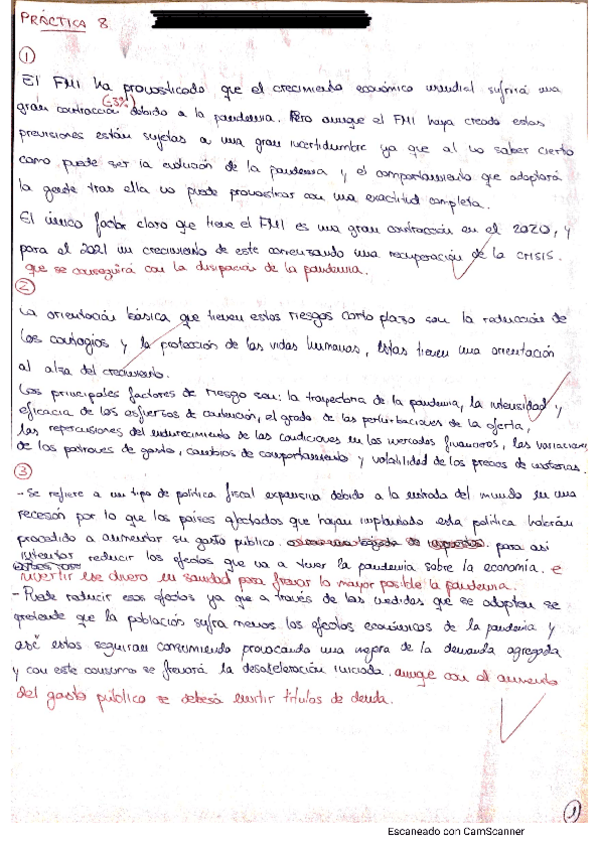 PRÁCTICA 8
①
El FMI ha pronosticado que el crecimiento económico mundial sufrirá una
gran contracción (-3%) debido a la pandemia. Pero aunque el FMI haya creado estas
previsiones están sujetas a una gran incertidumbre ya que al no saber cierto
como puede ser la evolución de la pandemia y el comportamiento que adoptará
la gente tras ella no puede pronosticar con una exactitud completa.
El único factor claro que tiene el FMI es una gran contracción en el 2020, y
para el 2021 un crecimiento de este comenzando una recuperación de la crisis.
que se conseguirá con la disipación de la pandemia.
②
La orientación básica que tienen estos riesgos corto plazo son la reducción de
los contagios y la protección de las vidas humanas, estas tienen una orientación
al alza del crecimiento.
Los principales factores de riesgo son: la trayectoria de la pandemia, la intensidad y
eficacia de los esfuerzos de contención, el grado de las perturbaciones de la oferta,
las repercusiones del endurecimiento de las condiciones en los mercados financieros, las variaciones
de los patrones de gasto, cambios de comportamiento y volatilidad de los precios de materias.
③
- Se refiere a un tipo de política fiscal expansiva debido a la entrada del mundo en una
recesión por lo que los países afectados que hayan implantado esta política habrán
procedido a aumentar su gasto público. para así
intentar reducir los efectos que va a tener la pandemia sobre la economía. e
invertir ese dinero en sanidad para frenar lo mayor posible la pandemia.
- Puede reducir esos efectos ya que a través de las medidas que se adoptan se
pretende que la población sufra menos los efectos económicos de la pandemia y
así estos seguirán consumiendo provocando una mejora de la demanda agregada
y con este consumo se frenará la desaceleración iniciada. aunqe con el aumento
del gasto público se deberá emitir títulos de deuda.
①
Escaneado con CamScanner